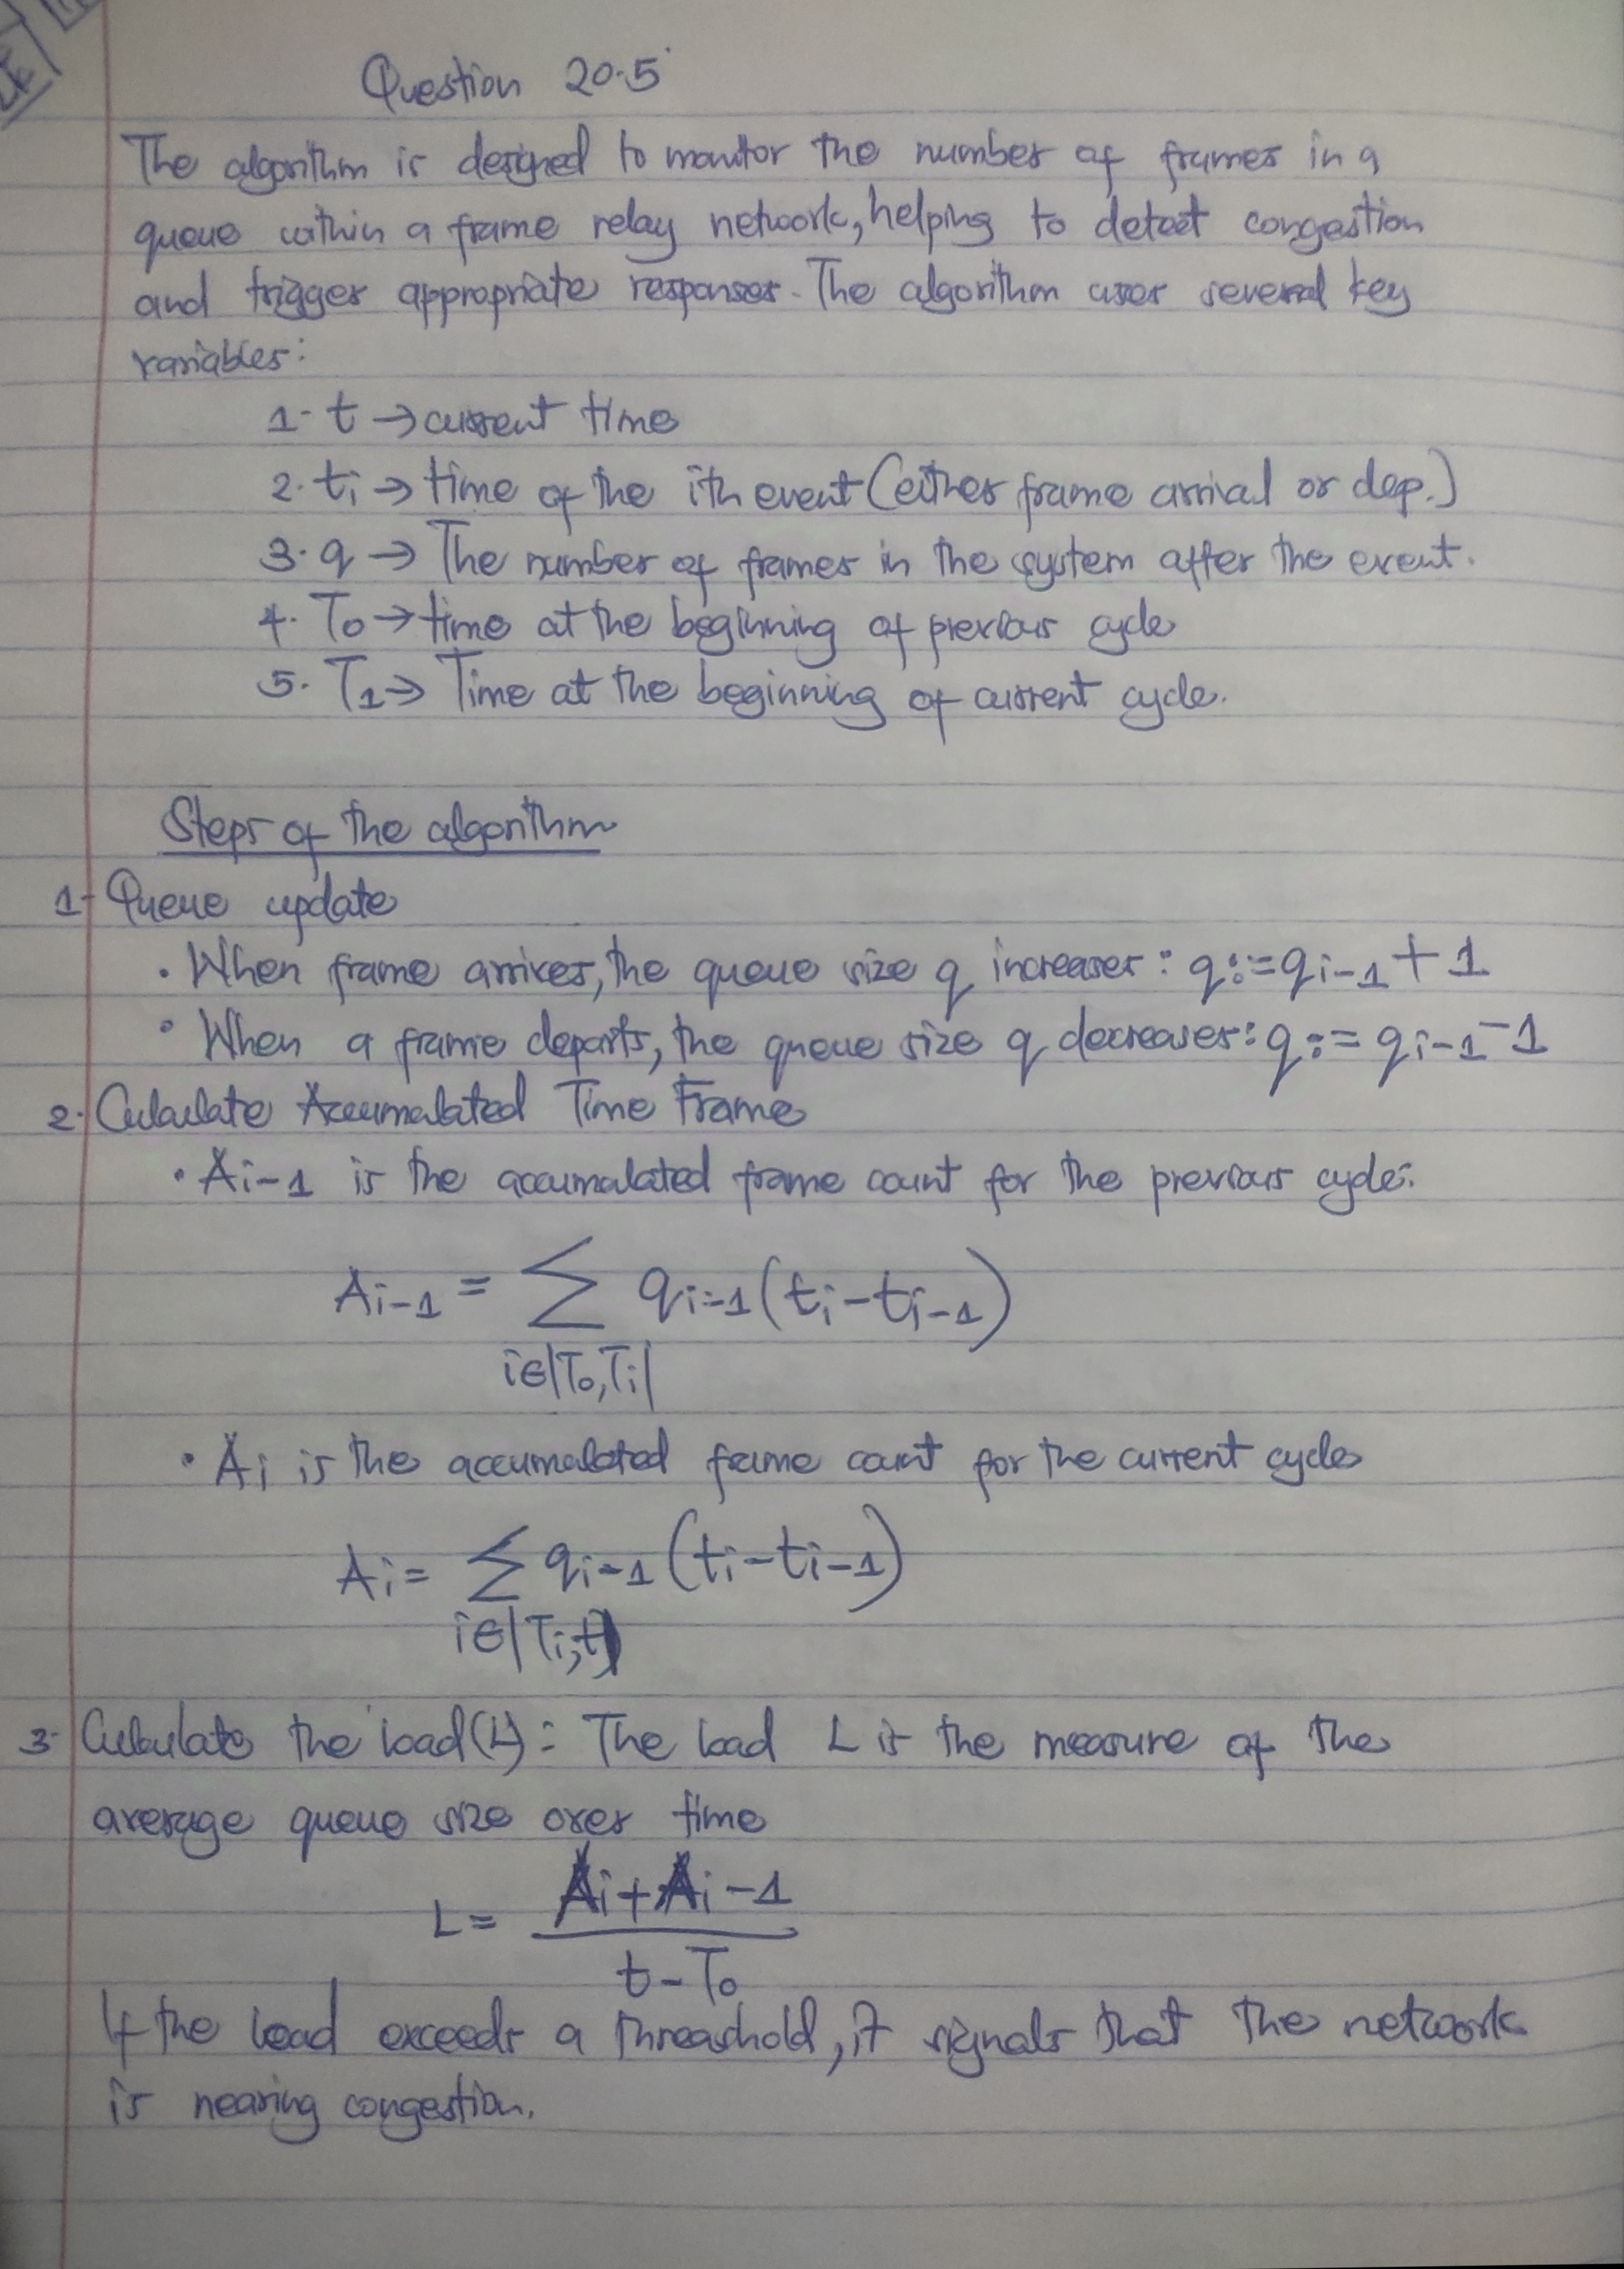 Question 20.5
The algorithm is designed to monitor the number of frames in a
queue within a frame relay network, helping to detect congestion
and trigger appropriate responses. The algorithm uses several key
variables:
1. t → current time
2. ti → time of the ith event (either frame arrival or dep.)
3. q → The number of frames in the system after the event.
4. T0 → time at the beginning of previous cycle
5. T1 → Time at the beginning of current cycle.
Steps of the algorithm
1- Queue update
• When frame arrives, the queue size q increases: qi = qi-1 + 1
• When a frame departs, the queue size q decreases: qi = qi-1 - 1
2. Calculate Accumulated Time Frame
• Ai-1 is the accumulated frame count for the previous cycle:
Ai-1 = ∑ qi-1 (ti - ti-1)
i∈|T0, Ti|
• Ai is the accumulated frame count for the current cycle
Ai = ∑ qi-1 (ti - ti-1)
i∈|Ti, t)
3- Calculate the load (L): The load L is the measure of the
average queue size over time
L = Ai + Ai-1
t - T0
If the load exceeds a threashold, it signals that the network
is nearing congestion.